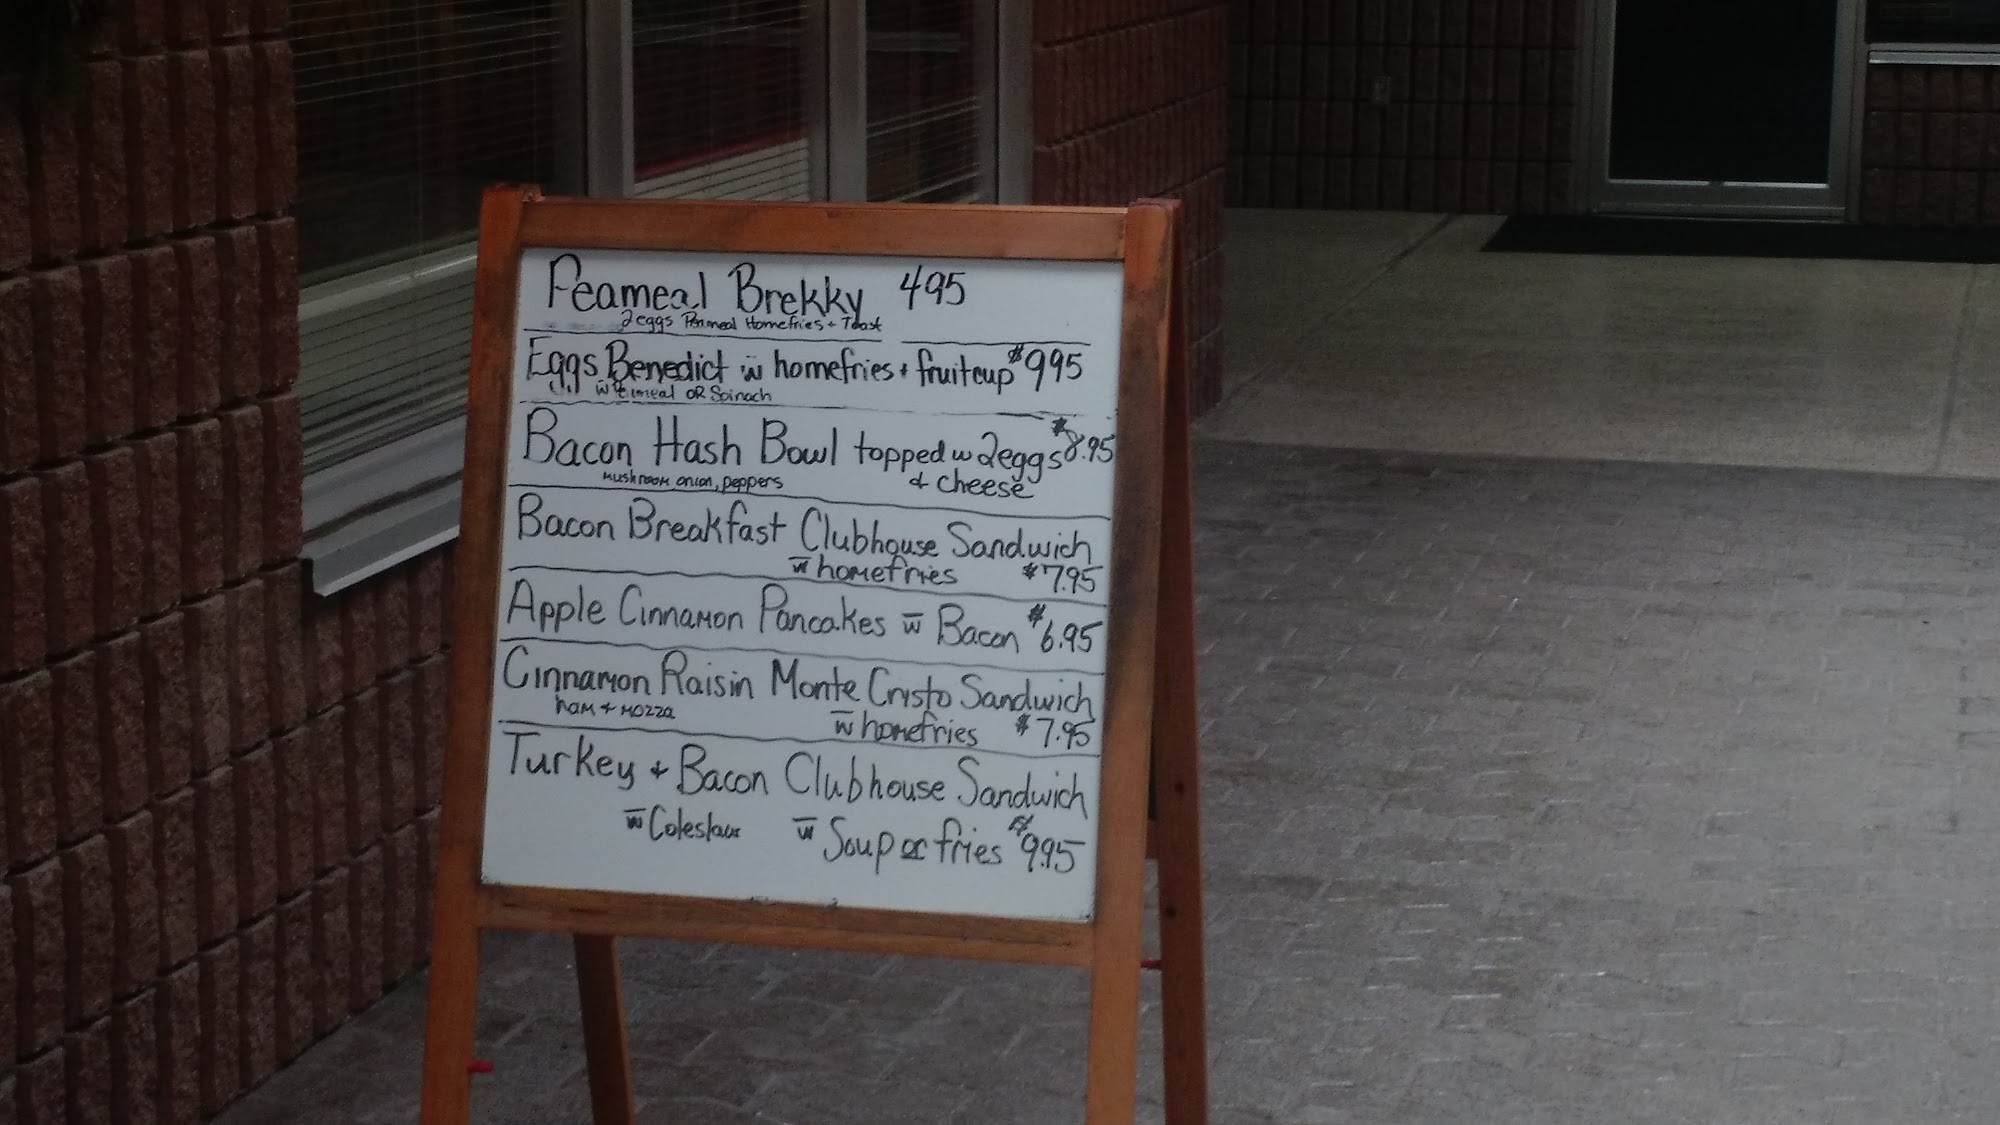 Peameal Brekky 495
2 eggs Peameal Homefries + Toast
Eggs Benedict w homefries + fruitcup $995
w Pemeal OR Spinach
Bacon Hash Bowl topped w 2eggs $8.95
Mushroom onion, peppers & cheese
Bacon Breakfast Clubhouse Sandwich
w homefries $7.95
Apple Cinnamon Pancakes w Bacon $6.95
Cinnamon Raisin Monte Cristo Sandwich
ham + mozza w homefries $7.95
Turkey + Bacon Clubhouse Sandwich
w Coleslaw w Soup or fries $9.95